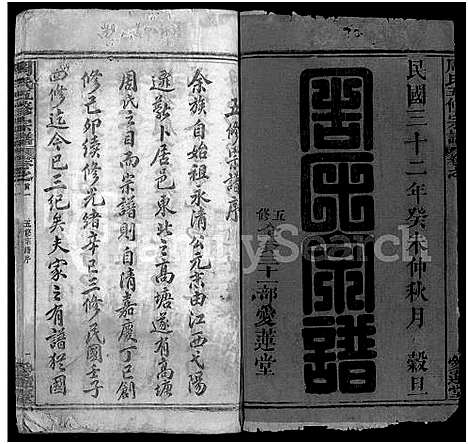 民國三十二年癸未仲秋月 穀旦
周氏宗譜
五修 三十二部愛蓮堂
五修宗譜序
余族自始祖永清公元末由江西弋陽
遷歙卜居邑東北之高塘遂有高塘
周氏之目而宗譜則自清嘉慶丁巳創
修己卯續修光緒辛巳三修民國壬子
四修迄今已三紀矣夫家之有譜猶國
五修宗譜序
FamilySearch